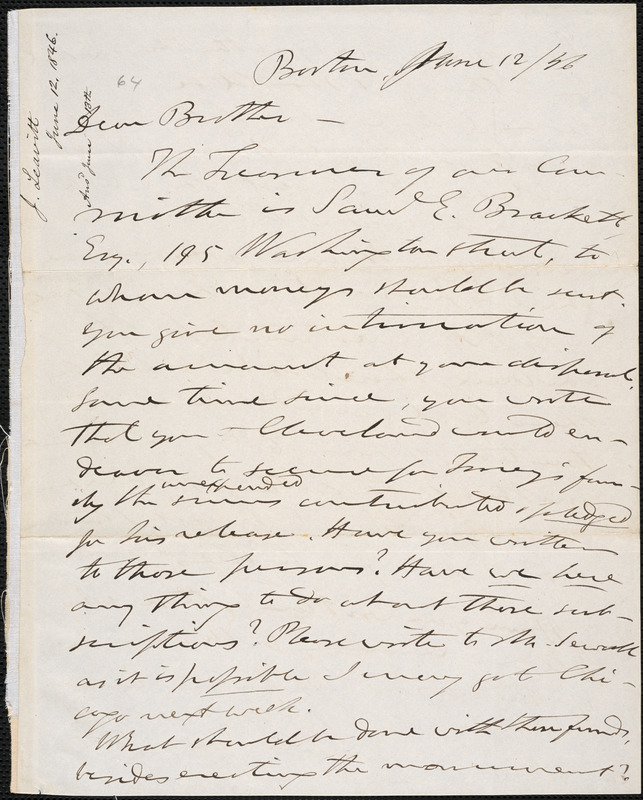 J. Leavitt
June 12. 1846.
Ansd June 13th
64
Boston, June 12/46
Dear Brother —
The Treasurer of our Com-
mittee is Saml E. Brackett,
Esq., 195 Washington street, to
whom moneys should be sent.
You give no intimation of
the amount at your disposal.
Some time since, you wrote
that you & Cleveland would en-
deavor to secure for Torrey's fam-
ily the unexpended sums contributed & pledged
for his release. Have you written
to those persons? Have we here
any thing to do about those sub-
scriptions? Please write to Mr. Sewall
as it is possible I may go to Chi-
cago next week.
What should be done with these funds,
besides erecting the monument?